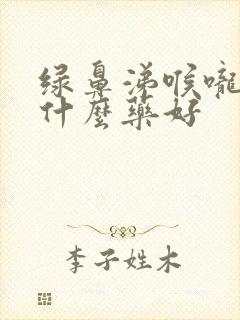 绿鼻涕喉嚨
什麼藥好
李子姓木